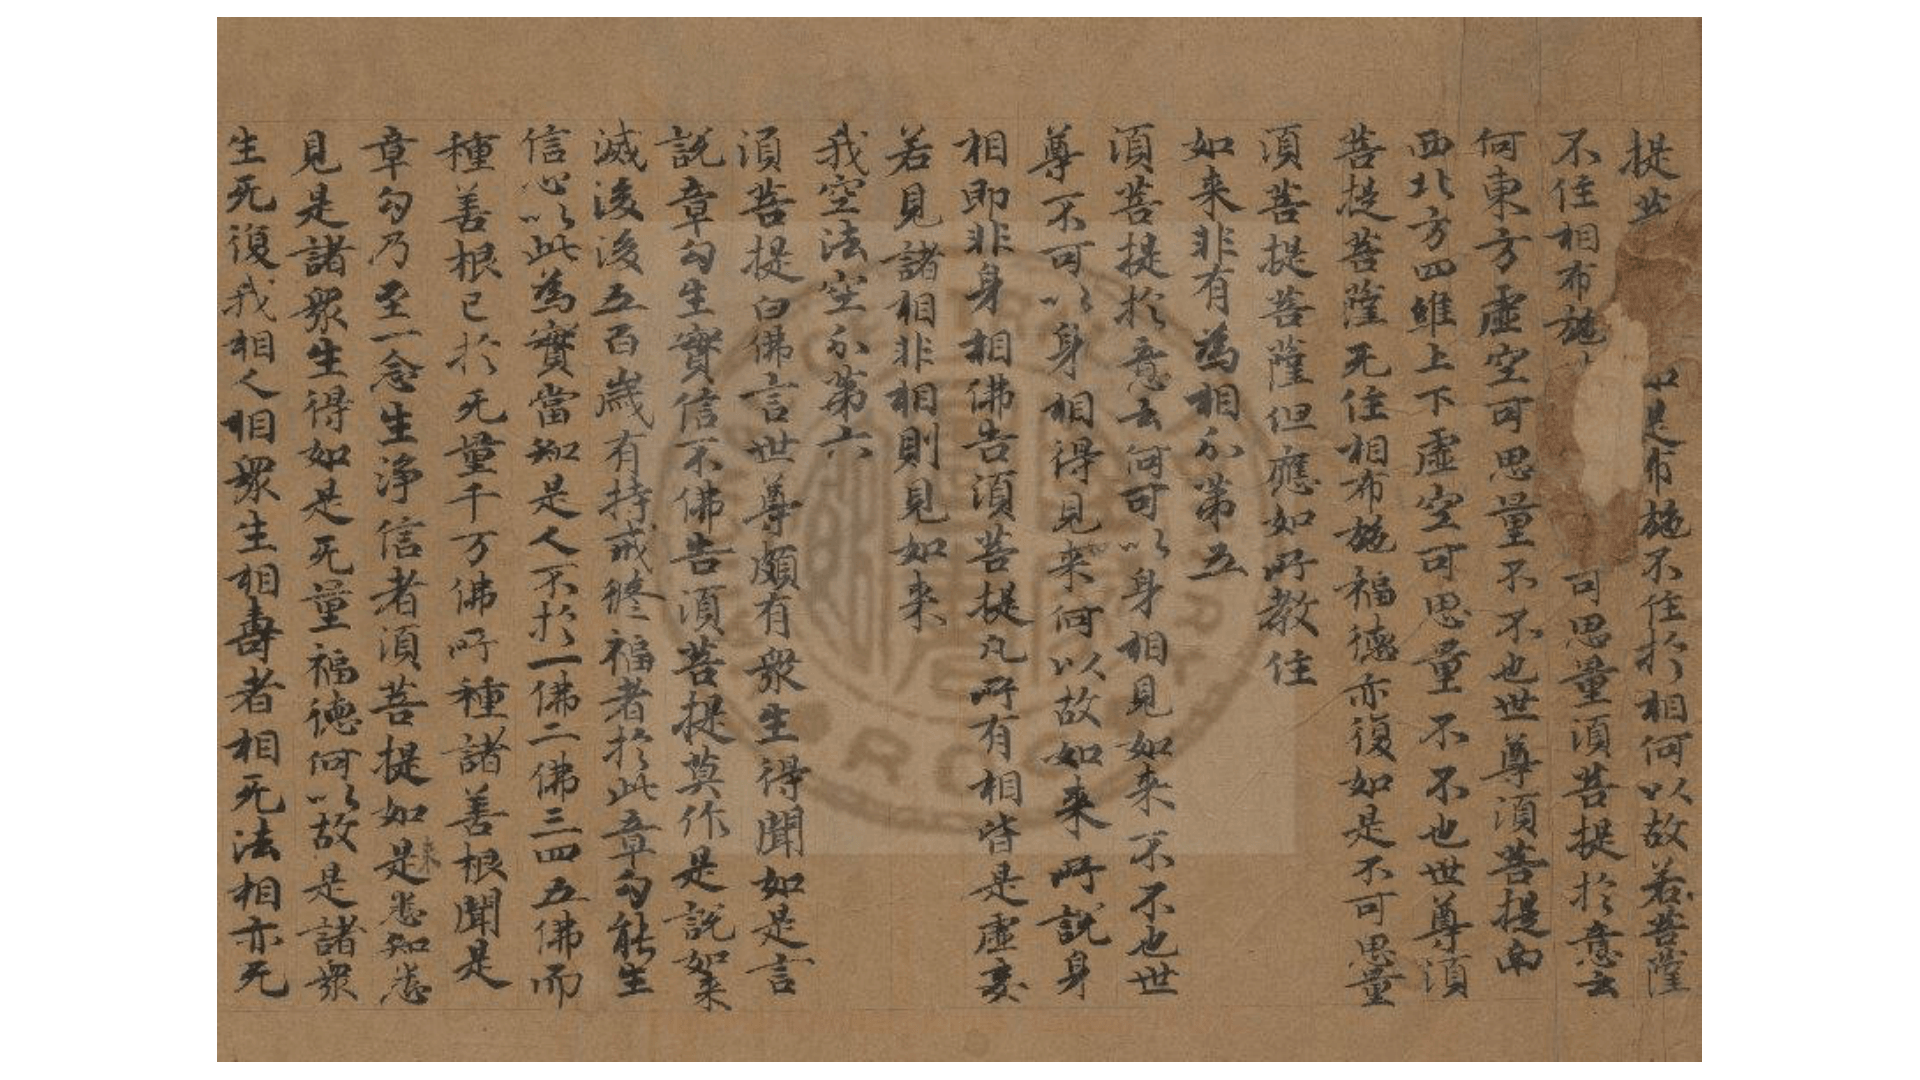 提菩如是布施不住於相何以故若菩薩
不住相布施可思量須菩提於意云
何東方虛空可思量不不也世尊須菩提南
西北方四維上下虛空可思量不不也世尊須
菩提菩薩无住相布施福德亦復如是不可思量
須菩提菩薩但應如所教住
如来非有為相分第五
須菩提於意云何可以身相見如来不不也世
尊不可以身相得見来何以故如来所說身
相即非身相佛告須菩提凡所有相皆是虛妄
若見諸相非相則見如来
我空法空分第六
須菩提白佛言世尊頗有衆生得聞如是言
說章句生實信不佛告須菩提莫作是說如来
滅後後五百歲有持戒修福者於此章句能生
信心以此為實當知是人不於一佛二佛三四五佛而
種善根已於无量千万佛所種諸善根聞是
章句乃至一念生淨信者須菩提如来是悉知悉
見是諸衆生得如是无量福德何以故是諸衆
生无復我相人相衆生相壽者相无法相亦无